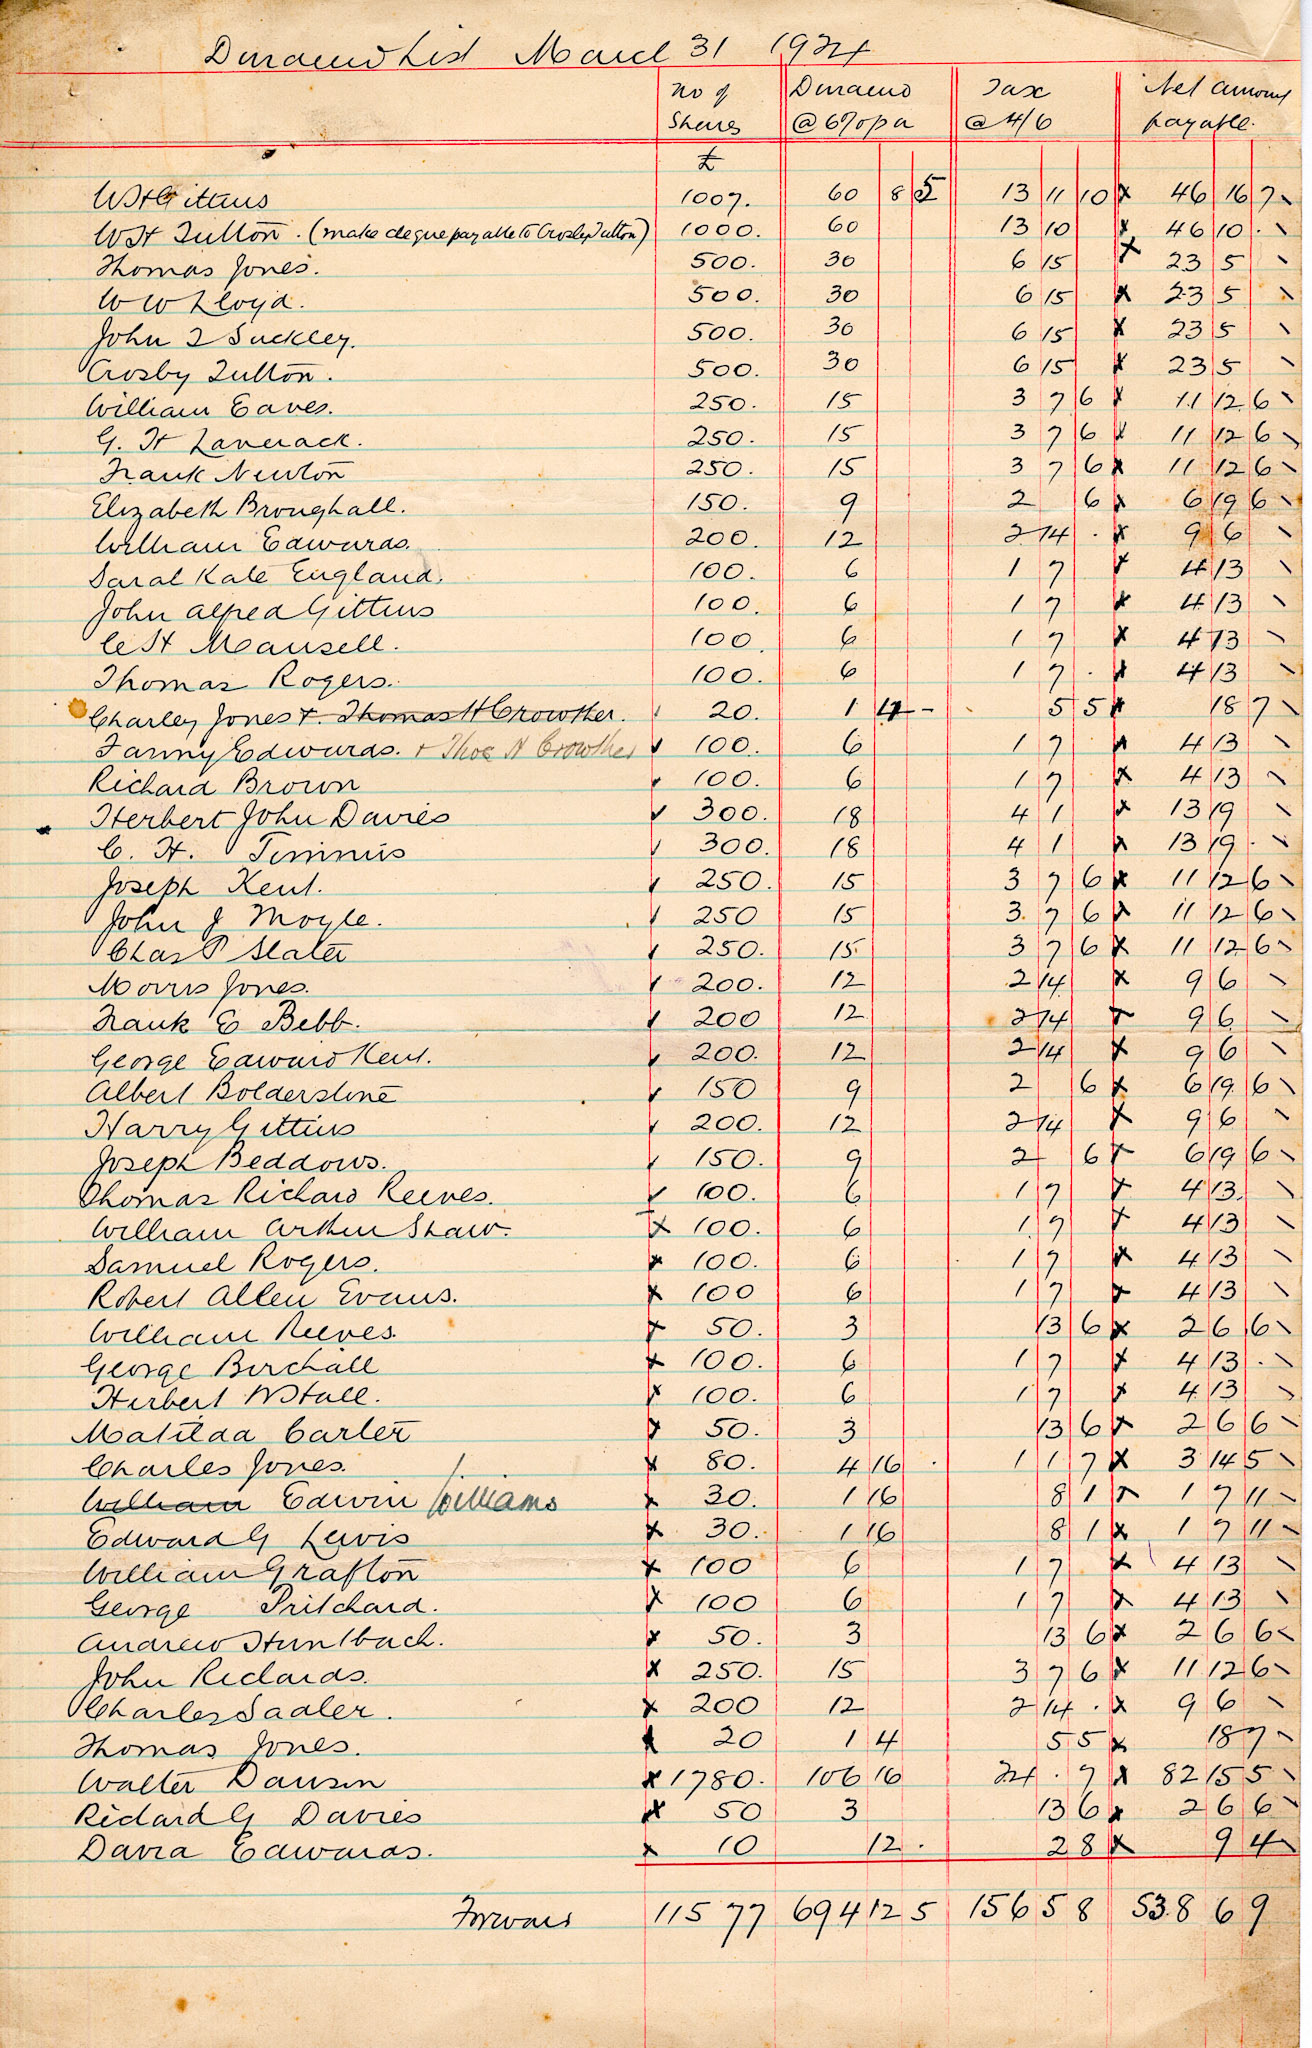 Dividend List March 31 1924
No of Shares Dividend @ 6% pa Tax @ 4/6 Net amount payable.
£
W H Gittins 1007. 60 8 5 13 11 10 x 46 16 7
W H Tulton. (make cheque payable to Crosby Tulton) 1000. 60 13 10 x 46 10 .
Thomas Jones. 500. 30 6 15 x 23 5
W W Lloyd. 500. 30 6 15 x 23 5
John T Suckley. 500. 30 6 15 x 23 5
Crosby Tulton. 500. 30 6 15 x 23 5
William Eaves. 250. 15 3 7 6 x 11 12 6
G. H Laverack. 250. 15 3 7 6 x 11 12 6
Frank Newton 250. 15 3 7 6 x 11 12 6
Elizabeth Broughall. 150. 9 2 6 x 6 19 6
William Edwards. 200. 12 2 14 . x 9 6
Sarah Kate England. 100. 6 1 7 x 4 13
John Alfred Gittins 100. 6 1 7 x 4 13
C H Mansell. 100. 6 1 7 x 4 13
Thomas Rogers. 100. 6 1 7 . x 4 13
Charley Jones + Thomas H Crowther. 20. 1 4 - 5 5 x 18 7
Fanny Edwards. + Thos H Crowther 100. 6 1 7 x 4 13
Richard Brown 100. 6 1 7 x 4 13
Herbert John Davies 300. 18 4 1 x 13 19
C. H. Timmis 300. 18 4 1 x 13 19 .
Joseph Kent. 250. 15 3 7 6 x 11 12 6
John J Moyle. 250 15 3. 7 6 x 11 12 6
Chas P Slater 250. 15 3 7 6 x 11 12 6
Morris Jones. 200. 12 2 14 x 9 6
Frank E Bebb. 200 12 2 14 x 9 6
George Edward Kent. 200. 12 2 14 x 9 6
Albert Bolderstone 150 9 2 6 x 6 19 6
Harry Gittins 200. 12 2 14 x 9 6
Joseph Beddows. 150. 9 2 6 x 6 19 6
Thomas Richard Reeves. 100. 6 1 7 x 4 13
William Arthur Shaw. x 100. 6 1 7 x 4 13
Samuel Rogers. x 100. 6 1 7 x 4 13
Robert Allen Evans. x 100 6 1 7 x 4 13
William Reeves. x 50. 3 13 6 x 2 6 6
George Birchall x 100. 6 1 7 x 4 13 .
Herbert W Hall. x 100. 6 1 7 x 4 13
Matilda Carter x 50. 3 13 6 x 2 6 6
Charles Jones. x 80. 4 16 . 1 1 7 x 3 14 5
William Edwin Williams x 30. 1 16 8 1 x 1 7 11
Edward G Lewis x 30. 1 16 8 1 x 1 7 11
William Grafton x 100 6 1 7 x 4 13
George Pritchard. x 100 6 1 7 x 4 13
Andrew Huntbach. x 50. 3 13 6 x 2 6 6
John Richards. x 250. 15 3 7 6 x 11 12 6
Charles Sadler. x 200 12 2 14 . x 9 6
Thomas Jones. x 20 1 4 5 5 x 18 7
Walter Dawson x 1780. 106 16 24 . 7 x 82 15 5
Richard G Davies x 50 3 13 6 x 2 6 6
David Edwards. x 10 12 . 2 8 x 9 4
Forward 11577 694 12 5 156 5 8 538 6 9